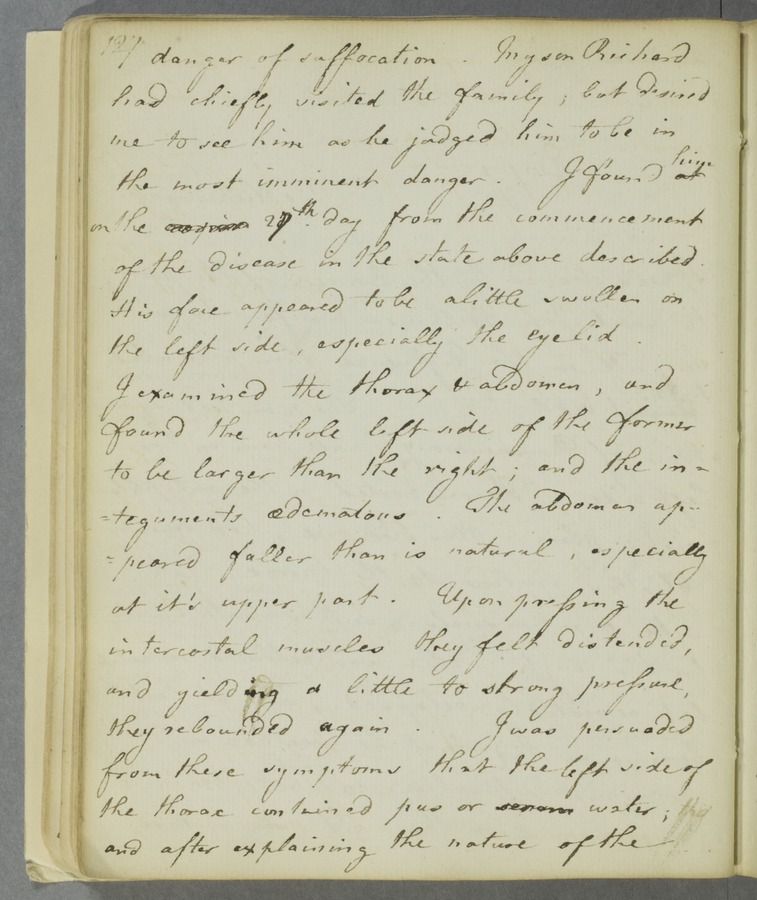 127 danger of suffocation. My son Richard
had chiefly visited the family; but desired
me to see him as he judged him to be in
the most imminent danger. I found him
on the 27th. day from the commencement
of the disease in the state above described.
His face appeared to be a little swollen on
the left side, especially the eyelid.
I examined the thorax & abdomen, and
found the whole left side of the former
to be larger than the right; and the in=
=teguments œdematous. The abdomen ap=
=peared fuller than is natural, especially
at it's upper part. Upon preſsing the
intercostal muscles they felt distended,
and yielding a little to strong preſsure,
they rebounded again. I was persuaded
from these symptoms that the left side of
the thorax contained pus or serum water;
and after explaining the nature of the